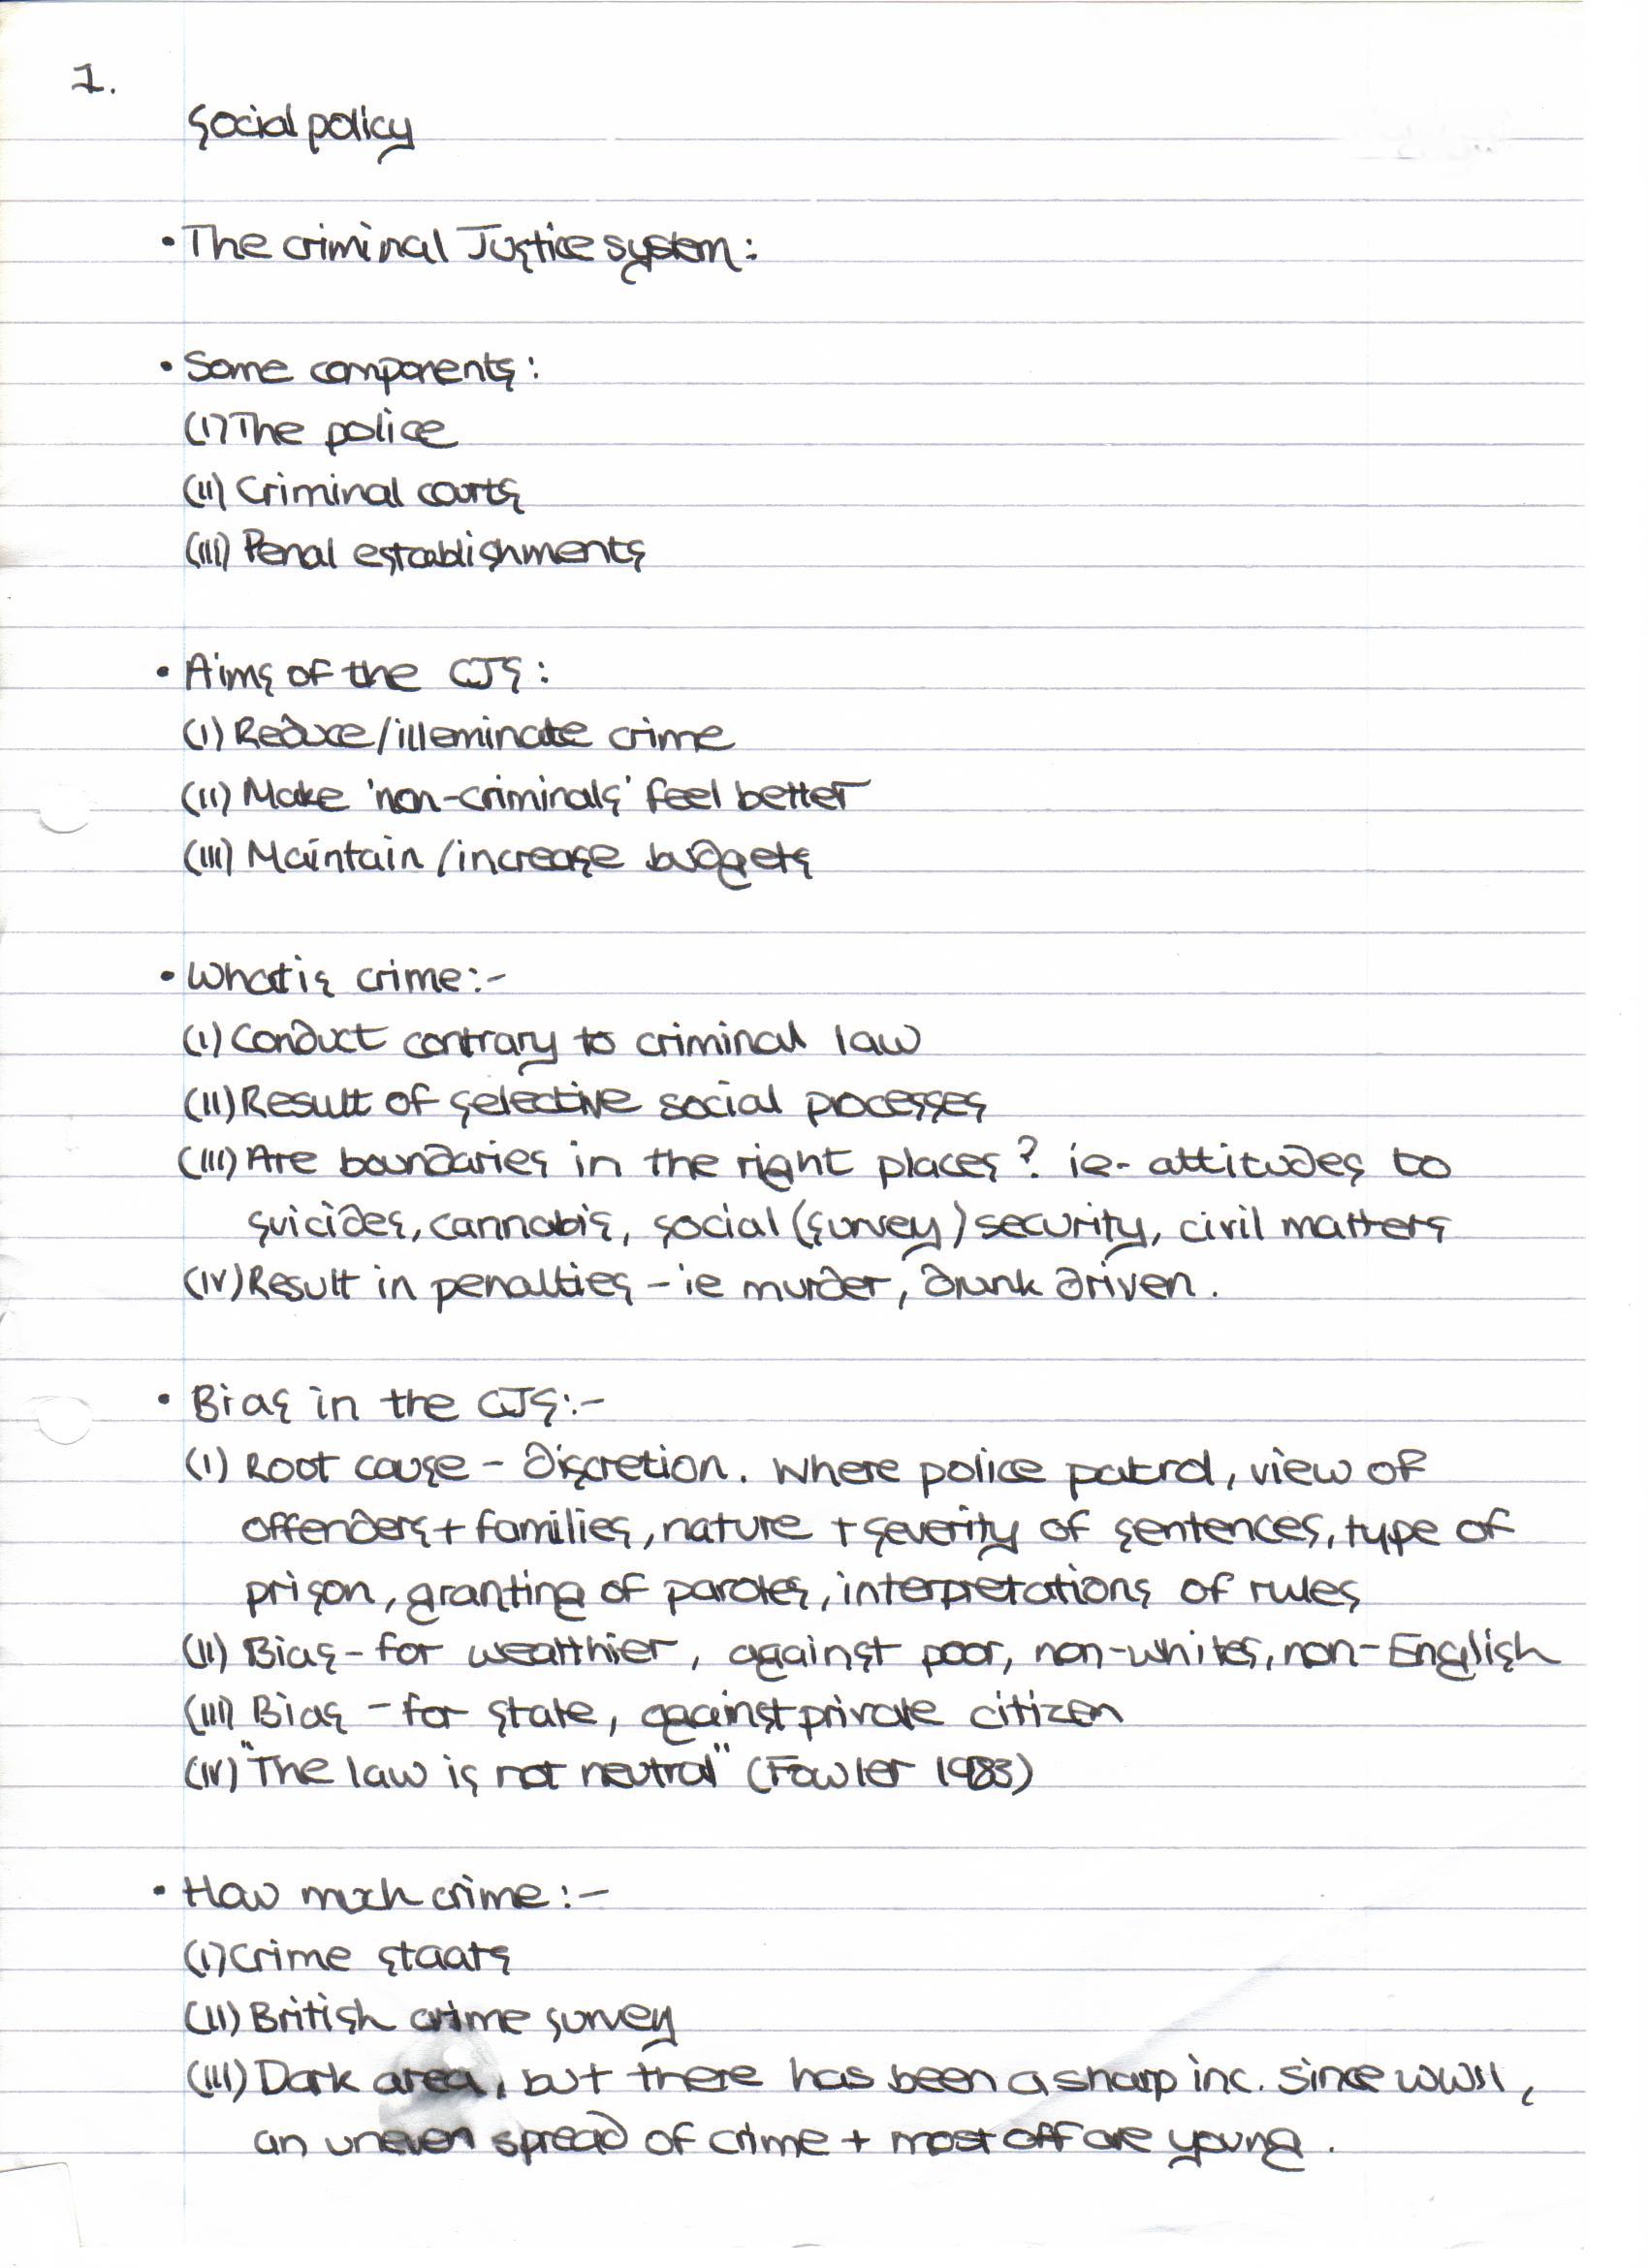 1.
Social policy
• The criminal Justice system:
• Some components:
(i) The police
(ii) Criminal courts
(iii) Penal establishments
• Aims of the CJS:
(i) Reduce/illeminate crime
(ii) Make 'non-criminals' feel better
(iii) Maintain/increase budgets
• What is crime:-
(i) Conduct contrary to criminal law
(ii) Result of selective social processes
(iii) Are boundaries in the right places? ie- attitudes to
suicides, cannabis, social (survey) security, civil matters
(iv) Result in penalties - ie murder, drunk driven.
• Bias in the CJS:-
(i) Root cause - discretion. Where police patrol, view of
offenders + families, nature + severity of sentences, type of
prison, granting of paroles, interpretations of rules
(ii) Bias - for wealthier, against poor, non-whites, non-English
(iii) Bias - for state, against private citizen
(iv) "The law is not neutral" (Fowler 1983)
• How much crime:-
(i) Crime staats
(ii) British crime survey
(iii) Dark area, but there has been a sharp inc. since WWII,
an uneven spread of crime + most off are young.